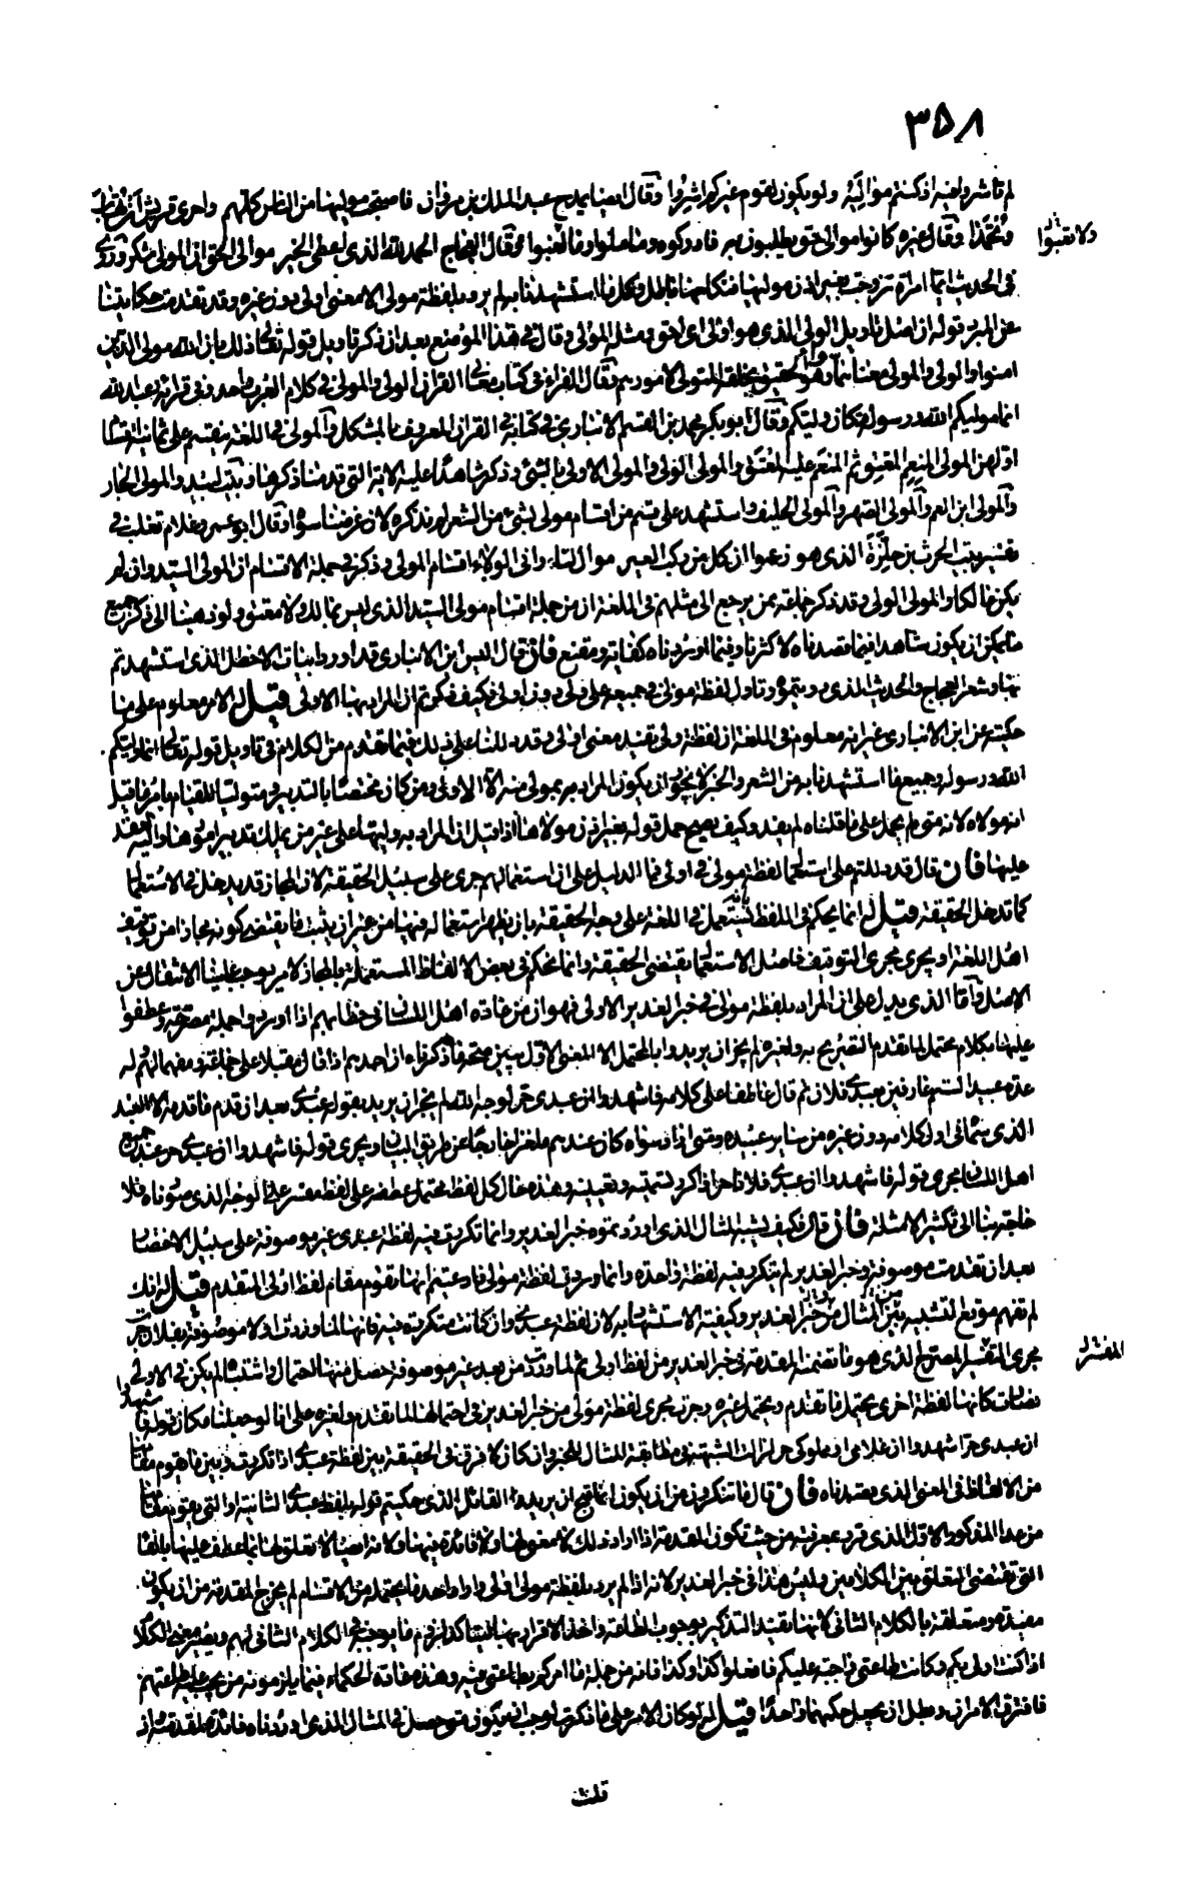 ٣٥٨
لم تاشروا فيه اذ كنتم مواليه ولو يكون لقوم غيركم اشروا وقال ايضا يمدح عبد الملك بن مروان فاصبحت موليها من الناس كلهم واحرى قريش ان تهاب
وتحمدا وقال غيره كانوا موالي حق يطلبون به فادركوه وما ملوا وما لغبوا وقال العجاج الحمد لله الذي اعطى الخير موالي الحق ان المولى شكر وروي
ولا تعبوا
في الحديث ايما امراة تزوجت بغير اذن موليها فنكاحها باطل وكل ما استشهدنا به لم يرد بلفظة مولى الا معنى اولى دون غيره وقد تقدمت حكايتنا
عن المبرد قوله ان اصل تاويل الولي الذي هو اولى اي احق ومثله المولى وقال في هذا الموضع بعد ان ذكر تاويل قوله تعالى ذلك بان الله مولى الذين
امنوا والولي والمولى معناهما سواء وهو الحقيق بخلقه المتولي لامورهم وقال الفراء في كتاب معاني القران الولي والمولى في كلام العرب واحد وفي قراءة عبد الله
انما موليكم الله ورسوله مكان وليكم وقال ابو بكر محمد بن القسم الانباري في كتابه في القران المعروف بالمشكل والمولى في اللغة ينقسم على ثمانية اقسام
اولهن المولى المنعم المعتق ثم المنعم عليه المعتق والمولى الولي والمولى الاولى بالشيء وذكر شاهدا عليه الاية التي قدمنا ذكرها وبيت لبيد والمولى الجار
والمولى ابن العم والمولى الصهر والمولى الحليف واستشهد على كل قسم من اقسام مولى بشيء من الشعر لم نذكره لان غرضنا سواه وقال ابو عمر وغلام تغلب في
تفسير بيت الحرث بن حلزة الذي هو زعموا ان كل من ركب العير موال لنا وانى الولاء اقسام المولى وذكر في جملة الاقسام ان المولى السيد وان لم
يكن مالكا والمولى الولي وقد ذكر جماعة ممن يرجع الى مثلهم في اللغة ان من جملة اقسام مولى السيد الذي ليس بمالك ولا معتق ولو ذهبنا الى ذكر جميع
ما يمكن ان يكون شاهدا فيما قصدناه لاكثرنا وفيما اوردناه كفاية ومقنع فان قال اليس ابن الانباري قد اورد ابيات الاخطل الذي استشهدتم
بها وشعر العجاج والحديث الذي رويتموه وتاول لفظة مولى في جميعه على ولي دون اولى فكيف ذكرتم ان المراد بها الاولى قيل له الامر معلوم على ما
حكيته عن ابن الانباري غير انه معلوم في اللغة ان لفظة ولي تفيد معنى اولى وقد دللنا على ذلك فيما تقدم من الكلام في تاويل قوله تعالى انما وليكم
الله ورسوله وجميع ما استشهدنا به من الشعر والخبر لا يجوز ان يكون المراد به بمولى منه الا الاولى ومن كان مختصا بالتدبير ومتوليا للقيام بامر ما قيل
انه مولاه لانه متى لم يحمل على ما قلناه لم يفد وكيف يصح حمل قوله بغير اذن مولاها اذا قيل ان المراد به وليها على غير من يملك تدبيرها واليه العقد
عليها فان قال قد دللتم على استعمال لفظة مولى في اولى فما الدليل على ان استعمالهم جرى على سبيل الحقيقة لان المجاز قد يدخل في الاستعمال
كما تدخل الحقيقة قيل له انما يحكم في اللفظ بانه مستعمل في اللغة على وجه الحقيقة بان يظهر استعماله فيها من غير ان يثبت ما يقتضي كونه مجازا من توقيف
اهل اللغة او يجري مجرى التوقيف فاصل الاستعمال يقتضي الحقيقة وانما نحكم في بعض الالفاظ المستعملة بالمجاز لامر يوجب علينا الانتقال عن
الاصل واما الذي يدل على ان المراد بلفظة مولى في خبر الغدير الاولى فهو ان من عادة اهل اللسان في خطابهم اذا اوردوا جملة مصرحة وعطفوا
عليها بكلام محتمل لما تقدم التصريح به ولغيره لم يجز ان يريدوا بالمحتمل الا المعنى الاول يبين صحة ما ذكرناه ان احدهم اذا قال مقبلا على جماعة ومفهما لهم له
عدة عبيد الستم عارفين بعبدي فلان ثم قال عاطفا على كلامه فاشهدوا ان عبدي حر لوجه الله لم يجز ان يريد بقوله عبدي بعد ان قدم ما قدمه الا العبد
الذي سماه في اول كلامه دون غيره من سائر عبيده ومتى اراد سواه كان عندهم ملغزا خارجا عن طريق البيان ويجري قوله فاشهدوا ان عبدي حر عند جميع
اهل اللسان مجرى قوله فاشهدوا ان عبدي فلانا حر اذا كرر تسميته وتعيينه وهذه حال كل لفظ محتمل عطف على لفظ مفسر على الوجه الذي صورناه فلا
حاجة بنا الى تكثير الامثلة فان قال وكيف يشبه المثال الذي اوردتموه خبر الغدير وانما تكررت فيه لفظة عبدي غير موصوفة على سبيل الاختصار
بعد ان تقدمت موصوفة وخبر الغدير لم يتكرر فيه لفظة واحدة وانما وردت لفظة مولى فادعيتم انها تقوم مقام لفظ اولى المتقدم قيل له انك
لم تفهم موقع التشبيه بين المثال وخبر الغدير وكيفية الاستشهاد به لان لفظة عبدي وان كانت متكررة فيه فانها لما وردت اولا موصوفة بفلان جرت
مجرى المفسر المصرح الذي هو ما تضمنته المقدمة في خبر الغدير من لفظ اولى ثم لما وردت من بعد غير موصوفة حصل فيها احتمال واشتباه لم يكن في الاولى
المفسر
فصارت كانها لفظة اخرى يحتمل ما تقدم ويحتمل غيره وجرت مجرى لفظة مولى من خبر الغدير في احتمالها لما تقدم ولغيره على انا لو جعلنا مكان قوله فاشهدوا
ان عبدي حر اشهدوا ان غلامي او مملوكي حر لزالت الشبهة في مطابقة المثال للخبر وان كان لا فرق في الحقيقة بين لفظة عبدي اذا تكررت وبين ما يقوم مقامها
من الالفاظ في المعنى الذي قصدناه فان قال ما تنكرون من ان يكون انما قبح ان يريد القائل الذي حكيتم قوله بلفظ عبدي الثانية او التي يقوم مقامها
من عدا المذكور الاول الذي قرر بمعرفته من حيث تكون المقدمة اذا اراد ذلك لا معنى لها ولا فائدة فيها ولانه ايضا لا تعلق لها بما عطف عليها بالفاء
التي تقتضي التعلق بين الكلامين وليس هذا في خبر الغدير لانه اذا لم يرد بلفظة مولى اولى واراد احد ما يحتمله من الاقسام لم يخرج المقدمة من ان يكون
مفيدة ومتعلقة بالكلام الثاني لانها تفيد التذكير بوجوب الطاعة واخذ الاقرار بها ليتاكد لزوم ما يوجبه في الكلام الثاني لهم ويصير معنى الكلام
اذا كنت اولى بكم وكانت طاعتي واجبة عليكم فافعلوا كذا وكذا فانه من جملة ما امركم بطاعتي فيه وهذه عادة الحكماء فيما يلزمونه من يجب عليه طاعتهم
فافترق الامران وبطل ان يجعل حكمهما واحدا قيل له لو كان الامر على ما ذكرت لوجب ان يكون متى حصل في المثال الذي اوردناه فائدة لمقدمته وان
قلت